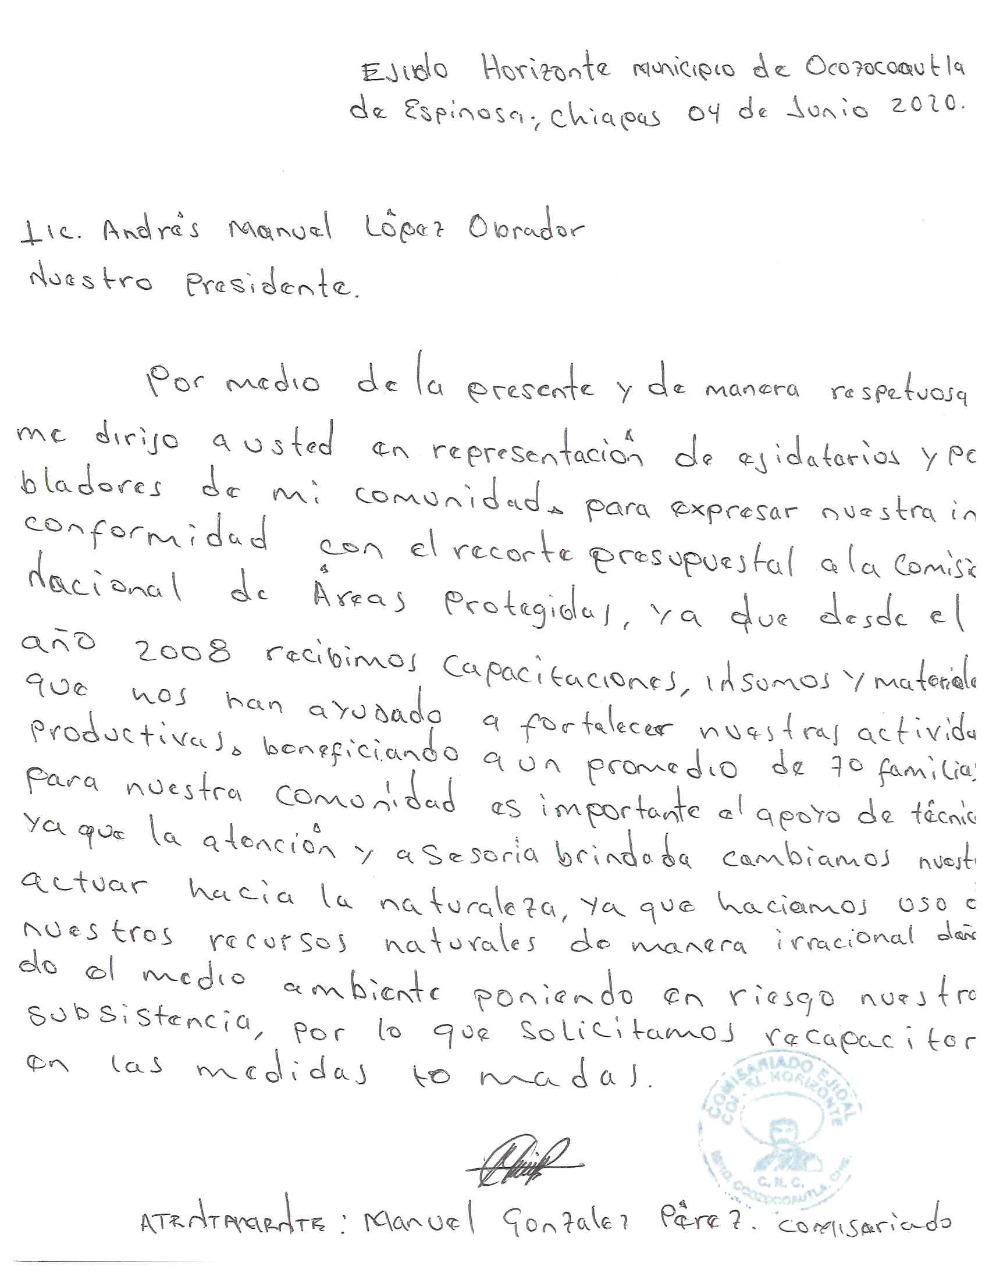 Ejido Horizonte Municipio de Ocozocoautla
de Espinosa; Chiapas 04 de Junio 2020.
Lic. Andrés Manuel López Obrador
Nuestro Presidente.
Por medio de la presente y de manera respetuosa
me dirijo a usted en representación de ejidatarios y po
bladores de mi comunidad, para expresar nuestra in
conformidad con el recorte presupuestal a la Comisió
Nacional de Áreas Protegidas, ya que desde el
año 2008 recibimos capacitaciones, insumos y materiale
que nos han ayudado a fortalecer nuestras activida
productivas, beneficiando a un promedio de 70 familias
para nuestra comunidad es importante el apoyo de técnic
ya que la atención y asesoria brindada cambiamos nuest
actuar hacia la naturaleza, ya que haciamos uso d
nuestros recursos naturales de manera irracional dañ
do el medio ambiente poniendo en riesgo nuestra
subsistencia, por lo que solicitamos recapacitar
en las medidas tomadas.
COMISARIADO EJIDAL
COL. EL HORIZONTE
C. N. C.
MPIO. OCOZOCOAUTLA, CHIS.
ATENTAMENTE: Manuel Gonzalez Pérez. Comisariado